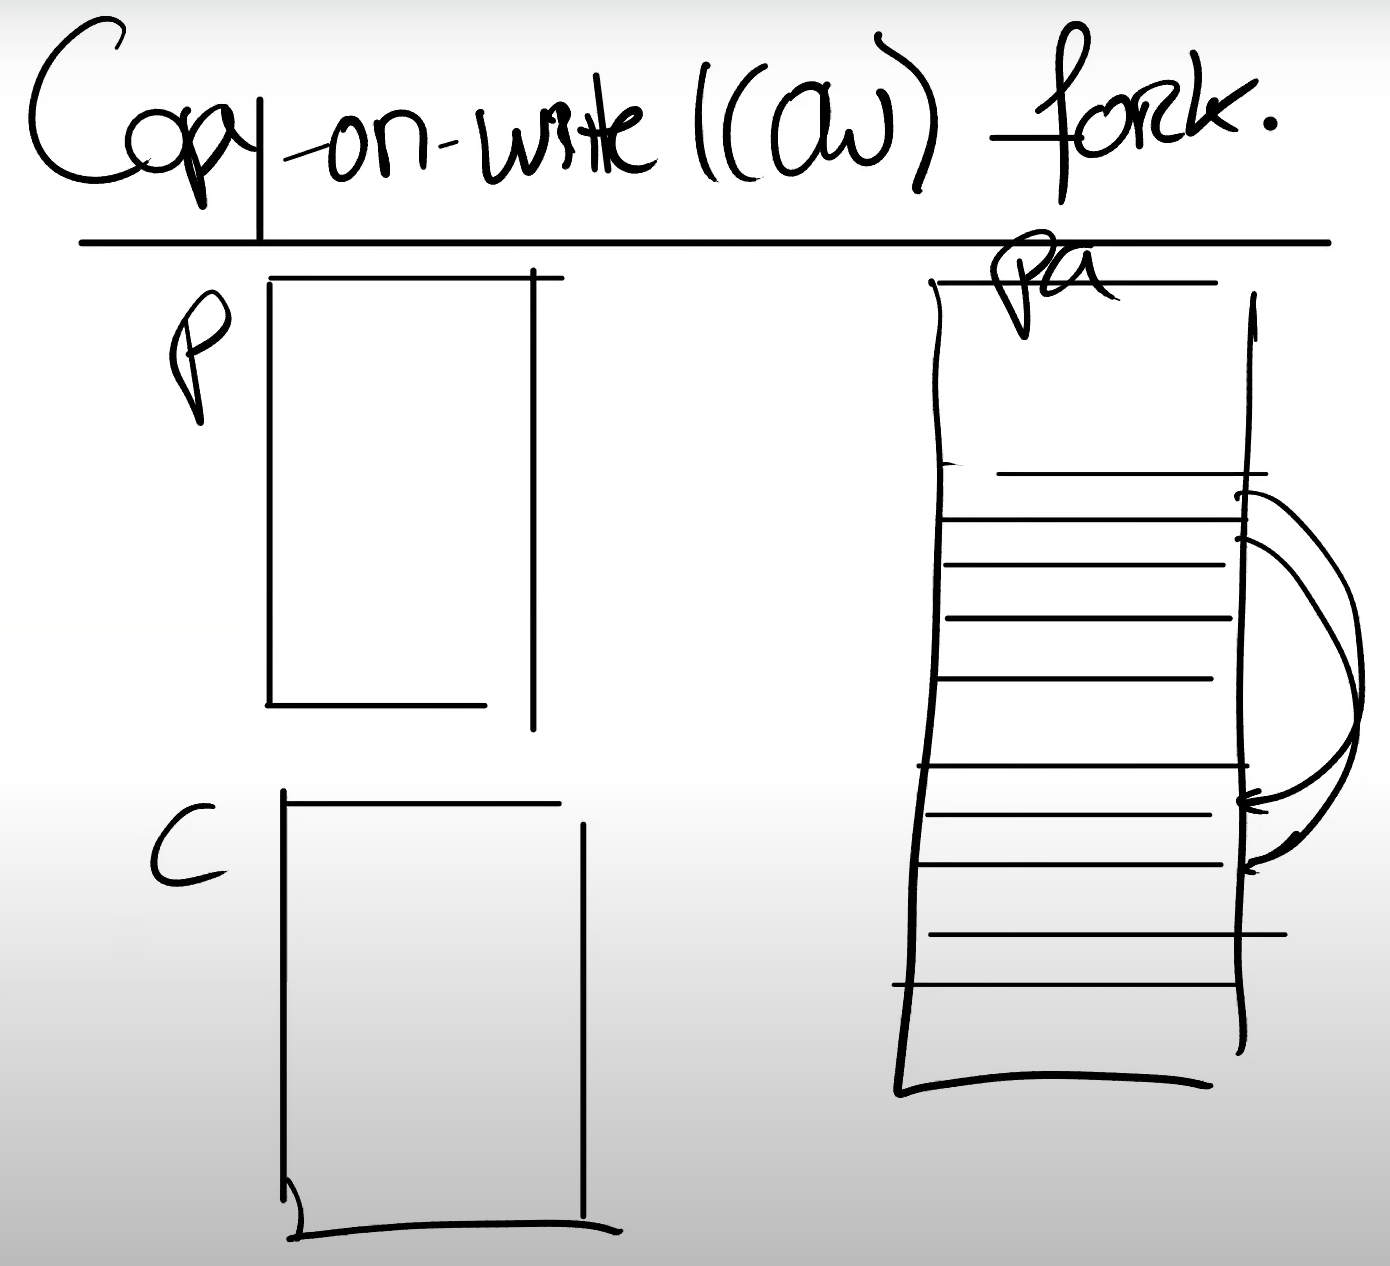 Copy-on-write (COW) fork.
P
pa
C